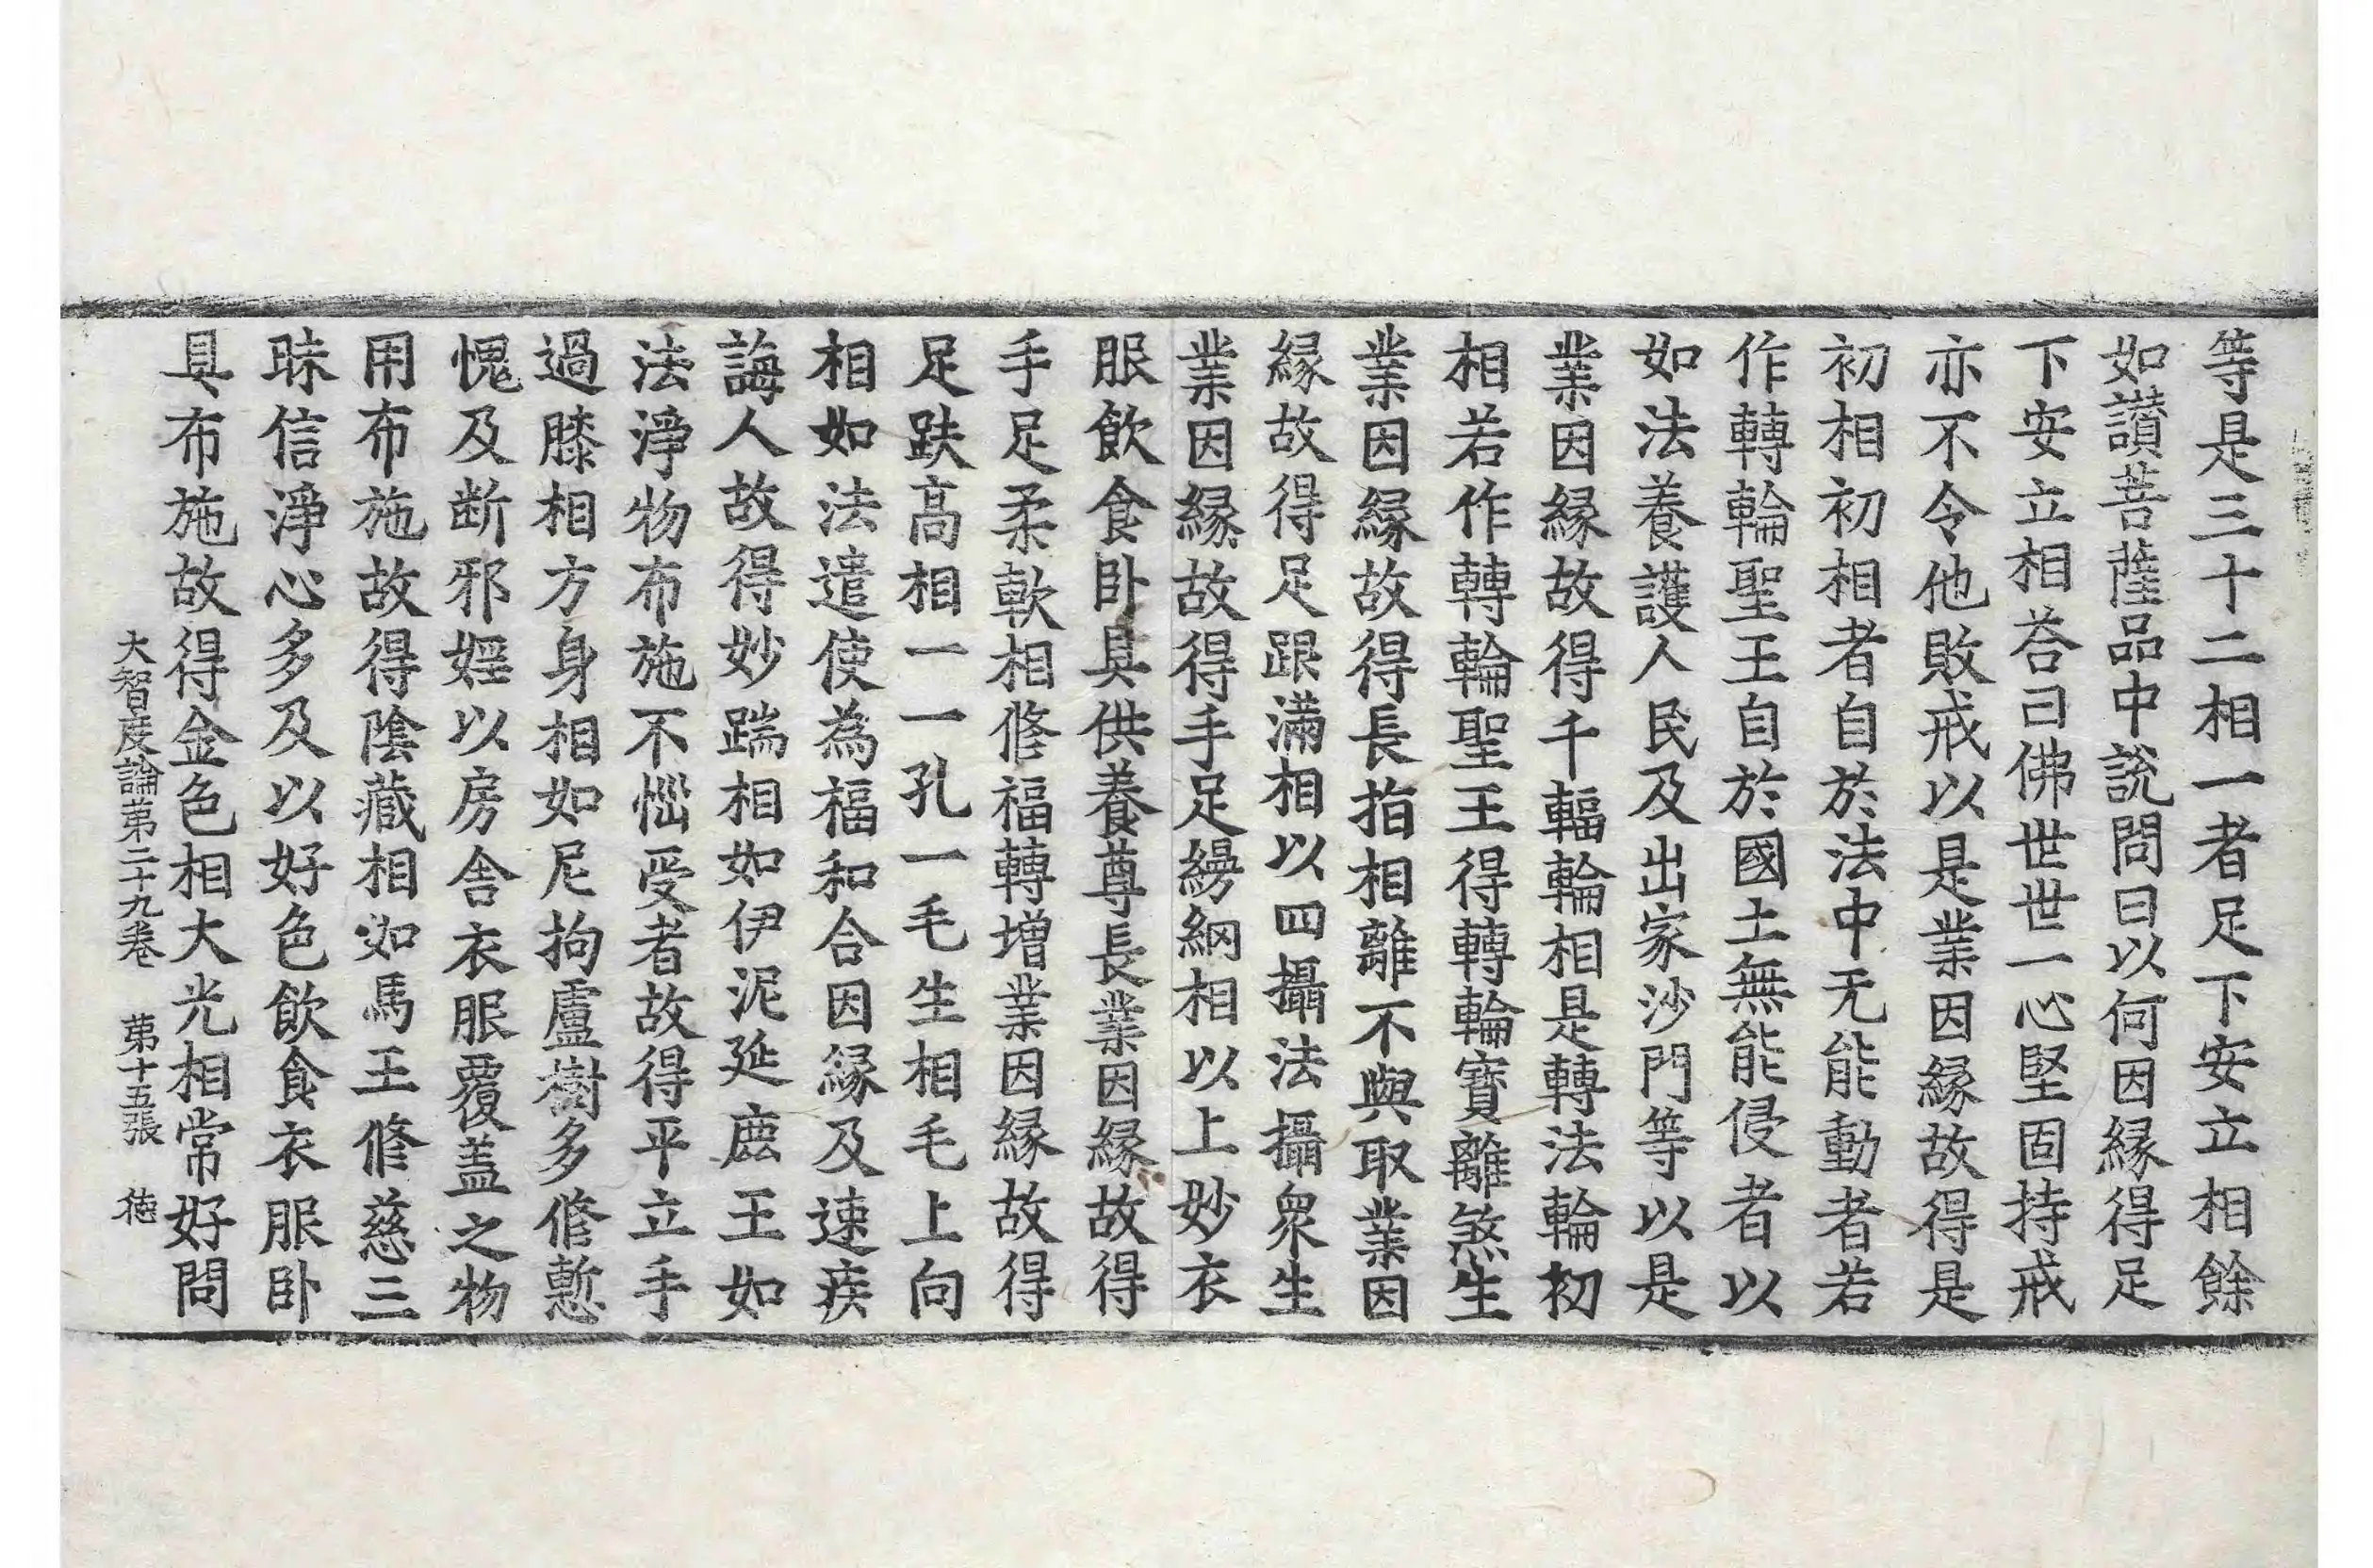 等是三十二相一者足下安立相餘
如讃菩薩品中說問曰以何因縁得足
下安立相荅曰佛世世一心堅固持戒
亦不令他敗戒以是業因縁故得是
初相初相者自於法中无能動者若
作轉輪聖王自於國土無能侵者以
如法養護人民及出家沙門等以是
業因縁故得千輻輪相是轉法輪初
相若作轉輪聖王得轉輪寶離煞生
業因縁故得長指相離不與取業因
縁故得足跟滿相以四攝法攝衆生
業因縁故得手足縵網相以上妙衣
服飲食卧具供養尊長業因縁故得
手足柔軟相脩福轉增業因縁故得
足趺高相一一孔一毛生相毛上向
相如法遣使為福和合因縁及速疾
誨人故得妙踹相如伊泥延鹿王如
法淨物布施不惱受者故得平立手
過膝相方身相如尼拘盧樹多脩慙
愧及断邪婬以房舍衣服覆盖之物
用布施故得陰藏相如馬王脩慈三
昧信淨心多及以好色飲食衣服卧
具布施故得金色相大光相常好問
大智度論苐二十九卷　苐十五張　徳